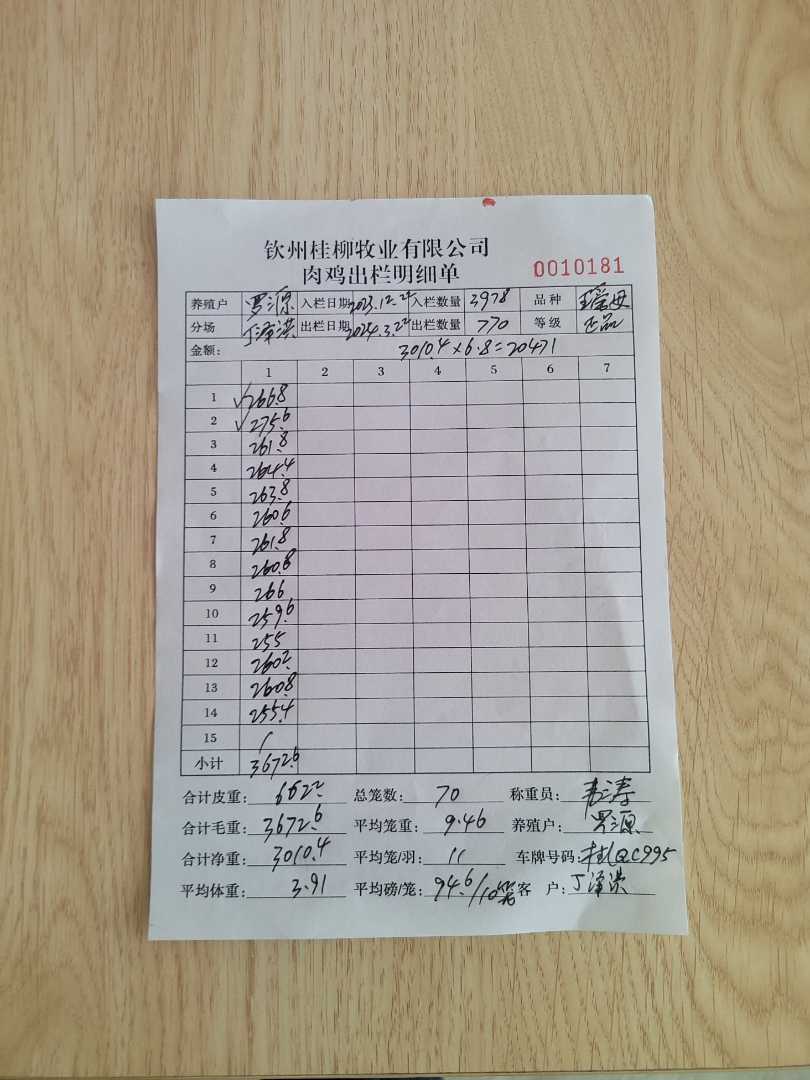 钦州桂柳牧业有限公司
肉鸡出栏明细单
0010181
养殖户 罗源 入栏日期 2023.12.24 入栏数量 3978 品种
分场 丁泽洪 出栏日期 2024.3.22 出栏数量 770 等级 正品
金额: 3010.4×6.8=20471
1 2 3 4 5 6 7
1 √266.8
2 √275.6
3 261.8
4 264.4
5 263.8
6 260.6
7 261.8
8 260.8
9 266
10 259.6
11 255
12 260.2
13 260.8
14 255.4
15 /
小计 3672.6
合计皮重: 662.2 总笼数: 70 称重员: 韦涛
合计毛重: 3672.6 平均笼重: 9.46 养殖户: 罗源
合计净重: 3010.4 平均笼/羽: 11 车牌号码: 桂QC995
平均体重: 3.91 平均磅/笼: 94.6/10笼 客 户: 丁泽洪